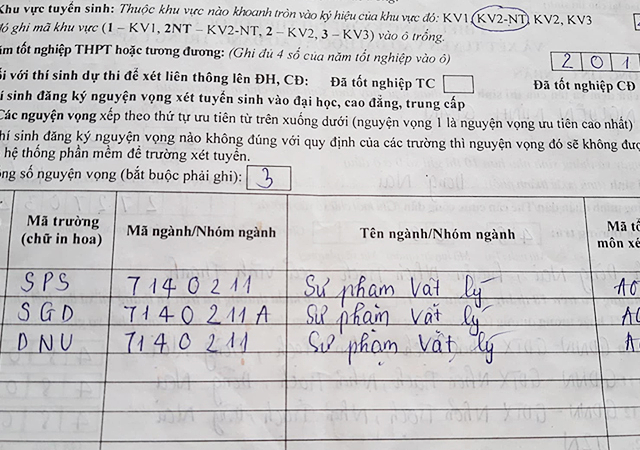 Khu vực tuyển sinh: Thuộc khu vực nào khoanh tròn vào ký hiệu của khu vực đó: KV1, KV2-NT, KV2, KV3
đó ghi mã khu vực (1 – KV1, 2NT – KV2-NT, 2 – KV2, 3 – KV3) vào ô trống.
ăm tốt nghiệp THPT hoặc tương đương: (Ghi đủ 4 số của năm tốt nghiệp vào ô) 2 0 1
ối với thí sinh dự thi để xét liên thông lên ĐH, CĐ: Đã tốt nghiệp TC Đã tốt nghiệp CĐ
í sinh đăng ký nguyện vọng xét tuyển sinh vào đại học, cao đẳng, trung cấp
Các nguyện vọng xếp theo thứ tự ưu tiên từ trên xuống dưới (nguyện vọng 1 là nguyện vọng ưu tiên cao nhất)
hí sinh đăng ký nguyện vọng nào không đúng với quy định của các trường thì nguyện vọng đó sẽ không đượ
hệ thống phần mềm để trường xét tuyển.
ng số nguyện vọng (bắt buộc phải ghi): 3
Mã trường (chữ in hoa) Mã ngành/Nhóm ngành Tên ngành/Nhóm ngành Mã tổ môn xé
SPS 7140211 Sư phạm Vật lý A0
SGD 7140211A Sư phạm Vật lý A0
DNU 7140211 Sư phạm Vật lý A